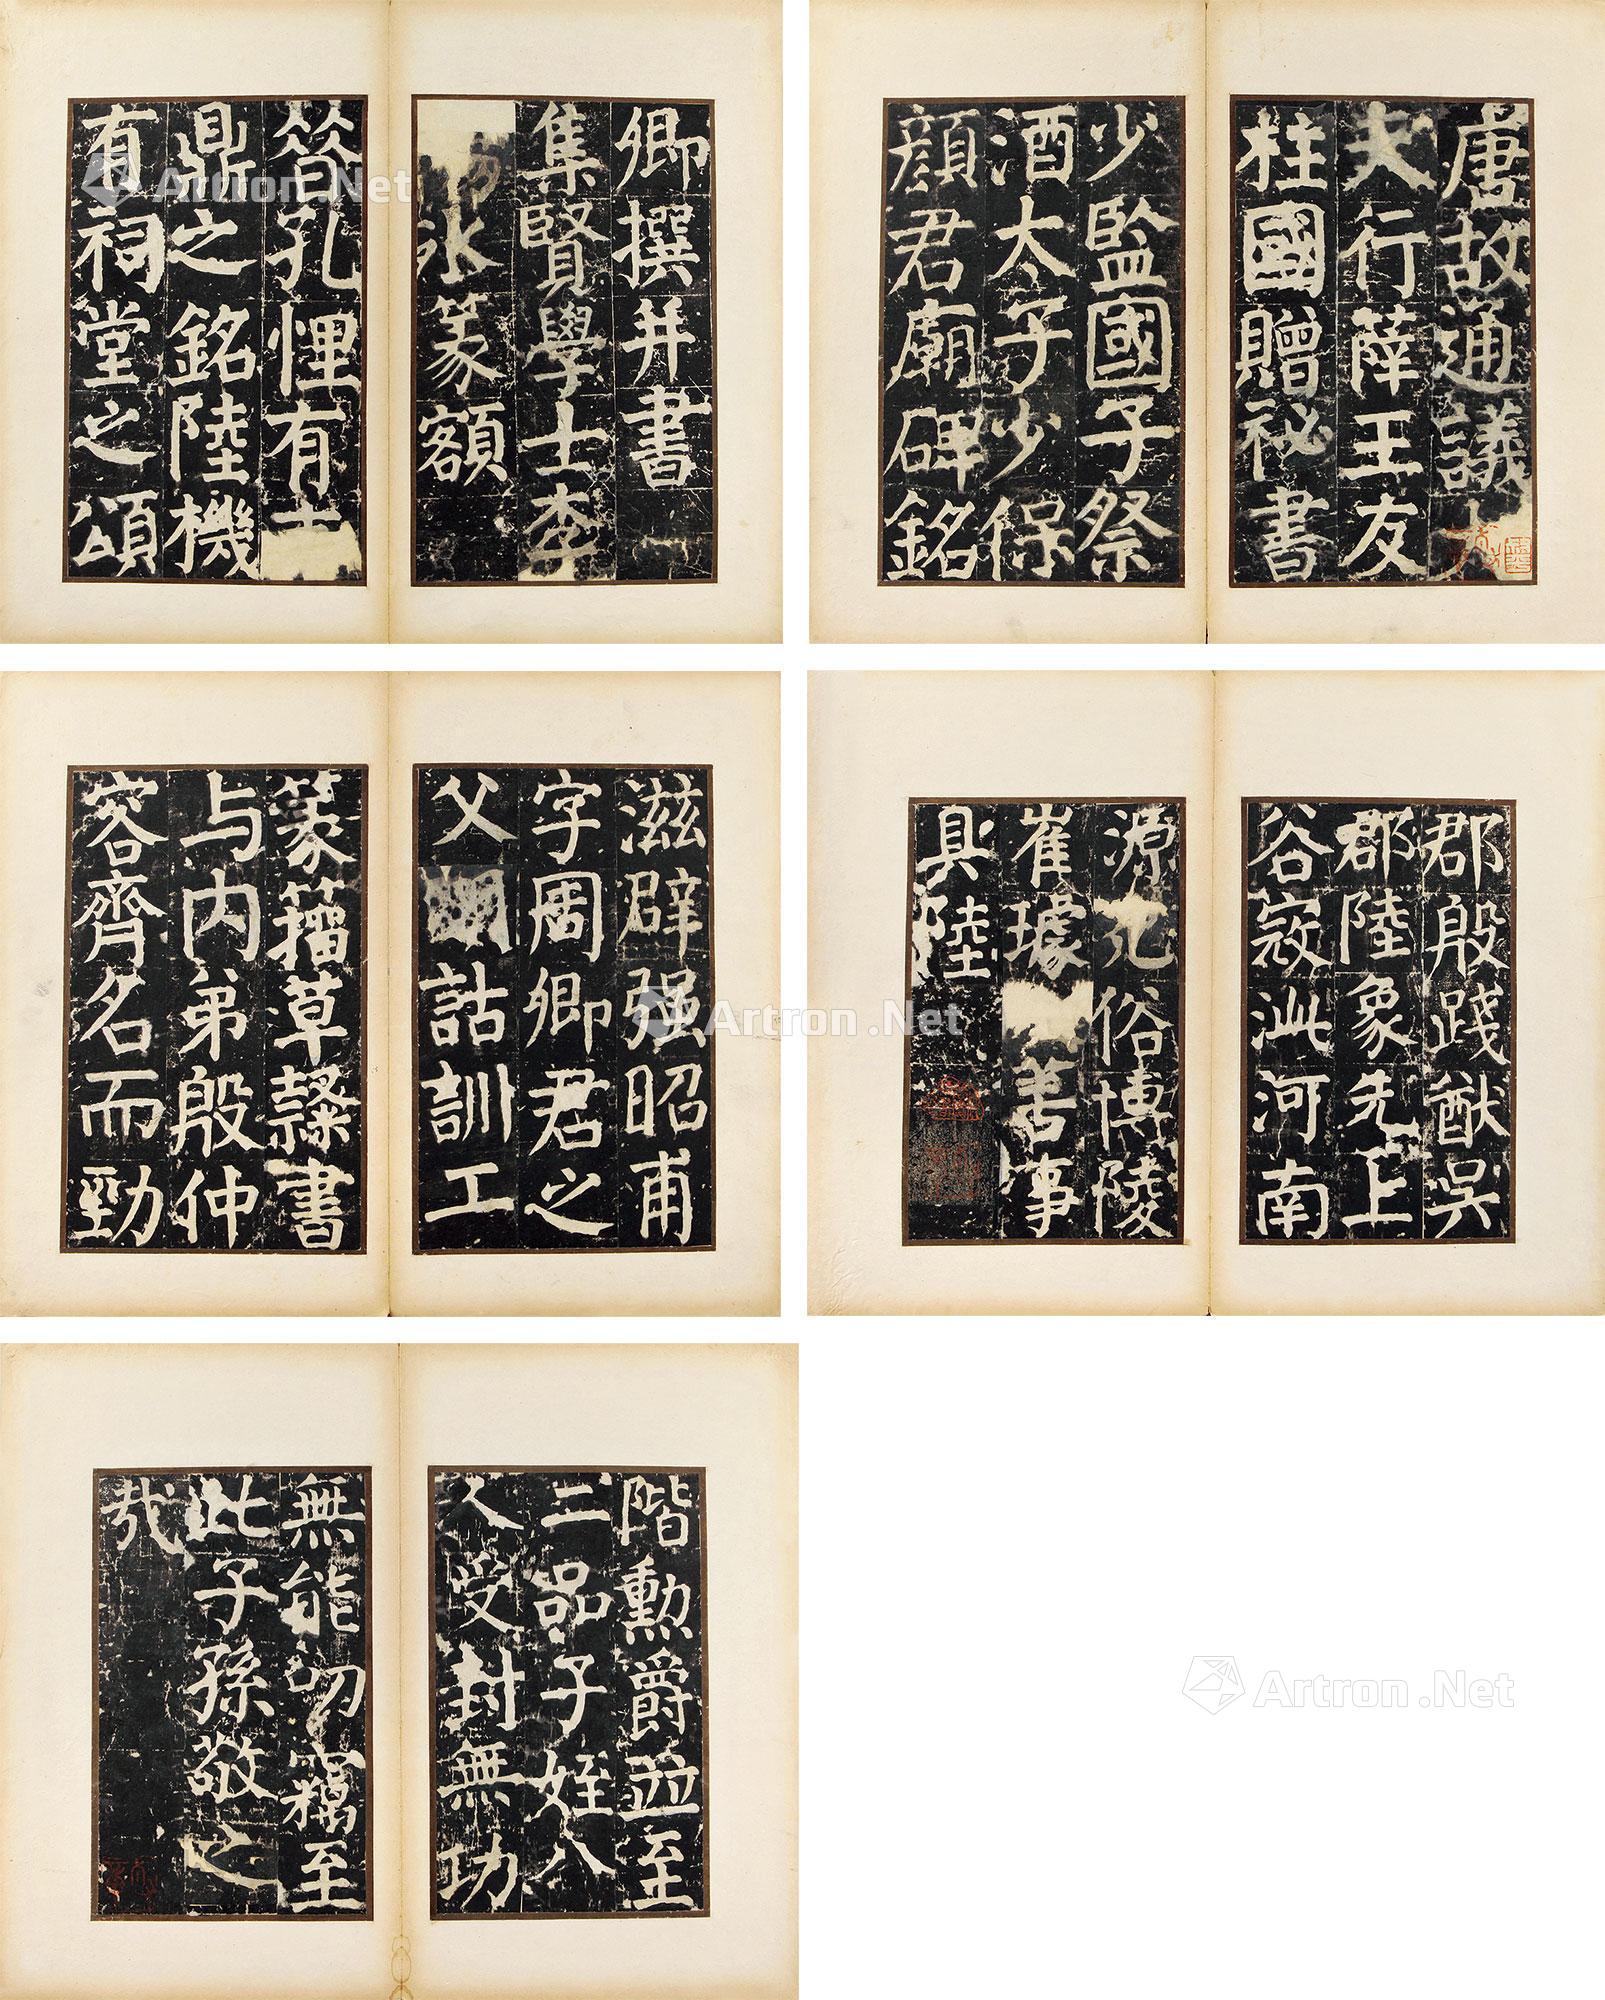 唐故通議大
夫行薛王友
柱國贈祕書
少監國子祭
酒太子少保
顏君廟碑銘
卿撰并書
集賢學士李
冰篆額
㫺孔悝有
鼎之銘陸機
有祠堂之頌
郡殷踐猷吳
郡陸象先上
谷寇泚河南
源光俗博陵
崔璩善事
具陸
滋辟强昭甫
字周卿君之
父詁訓工
篆籀草隸書
与内弟殷仲
容齊名而勁
階勳爵並至
三品子姪八
人受封無功
無能叨竊至
此子孫敬之
哉
Artron.Net
Artron.Net
Artron.Net